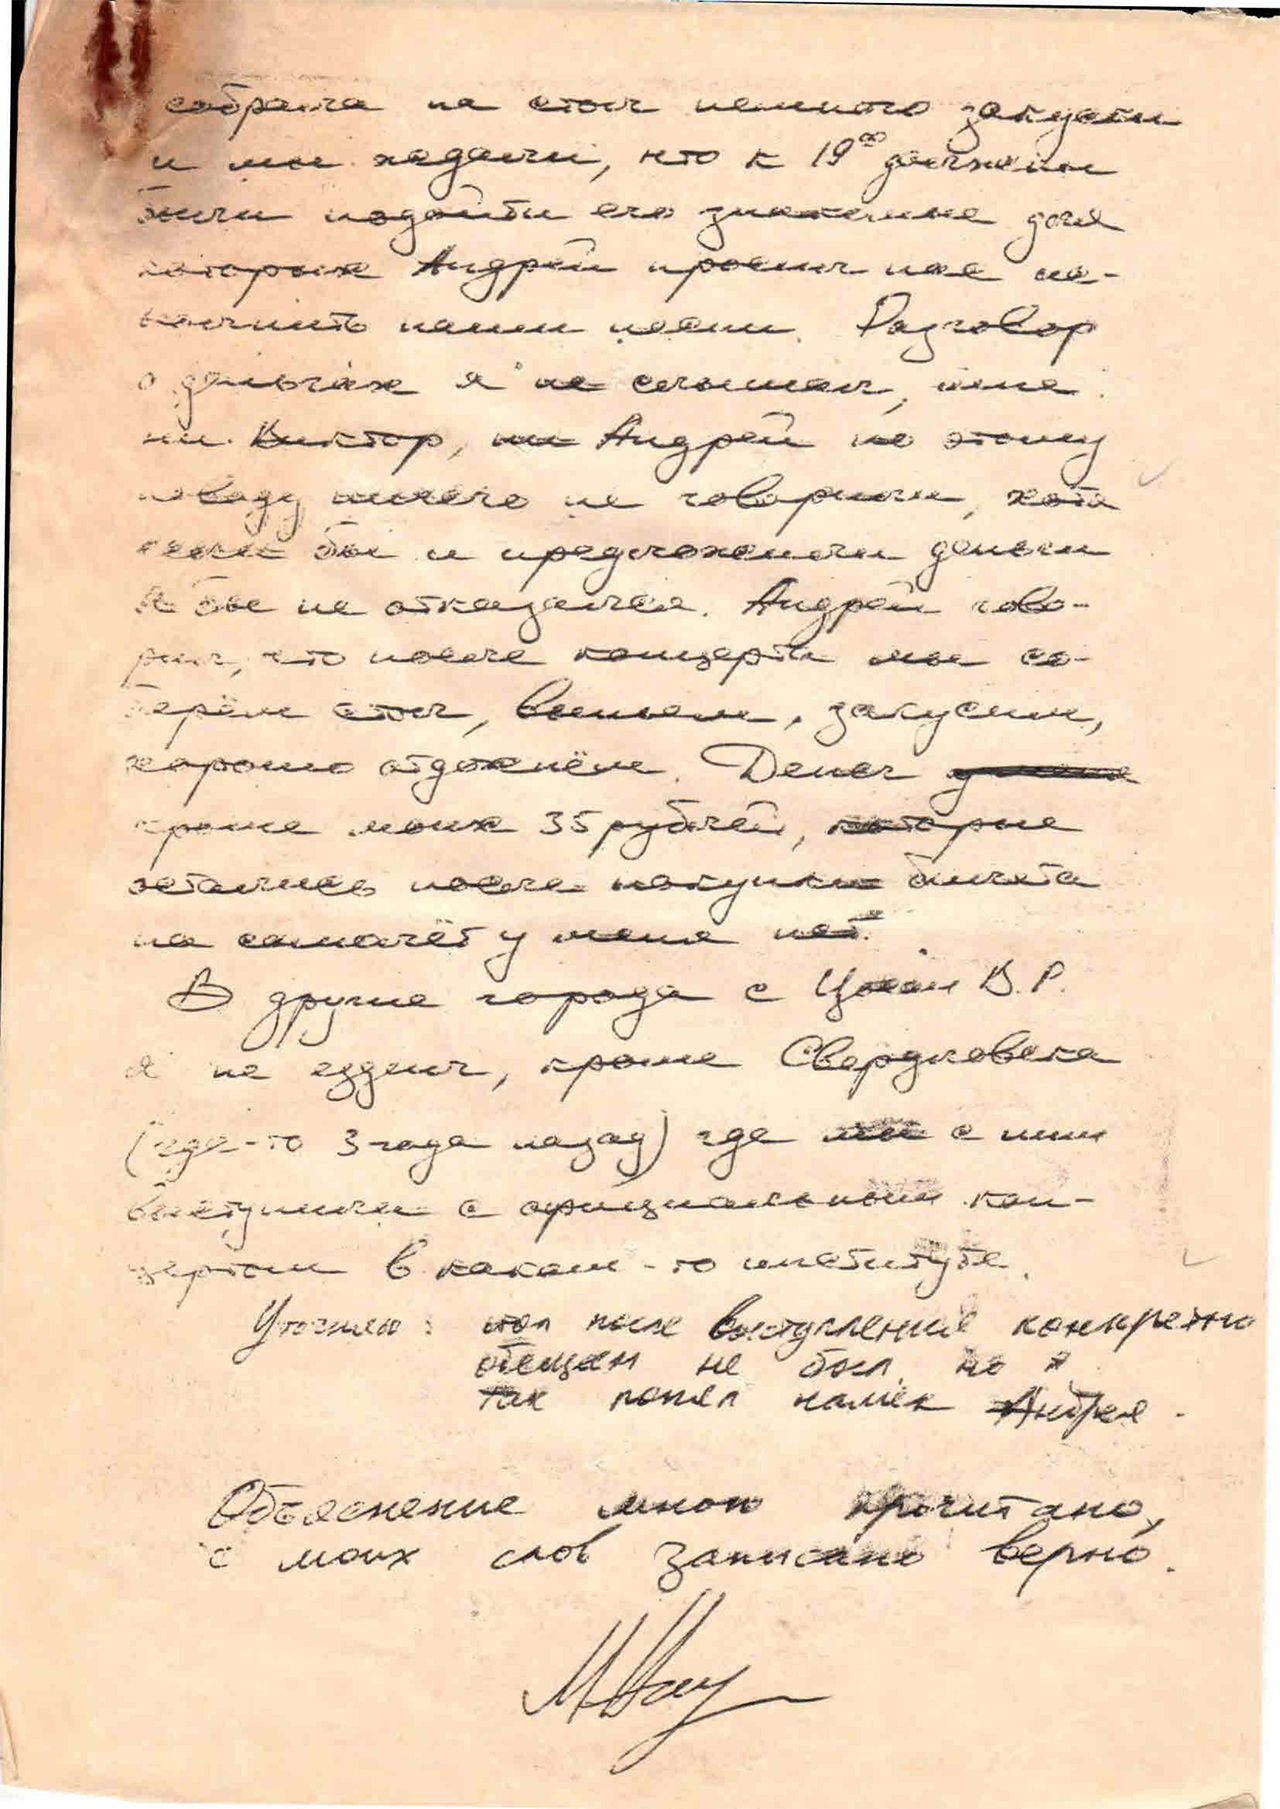 собрала на стол немного закуски
и мы ждали, что к 19⁰⁰ должны
были подойти его знакомые для
которых Андрей просил нас ис-
полнить наши песни. Разговор
о деньгах я не слышал, мне
ни Виктор, ни Андрей по этому
поводу ничего не говорили, хотя
если бы и предложили деньги
я бы не отказался. Андрей гово-
рил, что после концерта мы со-
берём стол, выпьем, закусим,
хорошо отдохнём. Денег
кроме моих 35 рублей, которые
остались после покупки билета
на самолёт у меня нет.
В другие города с Цоем В.Р.
я не ездил, кроме Свердловска
(где-то 3 года назад) где мы с ним
выступили с официальным кон-
цертом в каком-то институте.
Уточняю: стол после выступления конкретно
обещан не был, но я
так понял намёк Андрея.
Объяснение мною прочитано,
с моих слов записано верно.